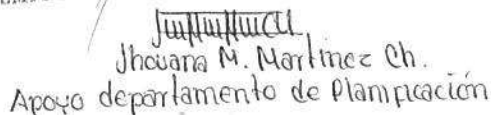 Jhovana M. Martinez Ch.
Apoyo departamento de Planificación